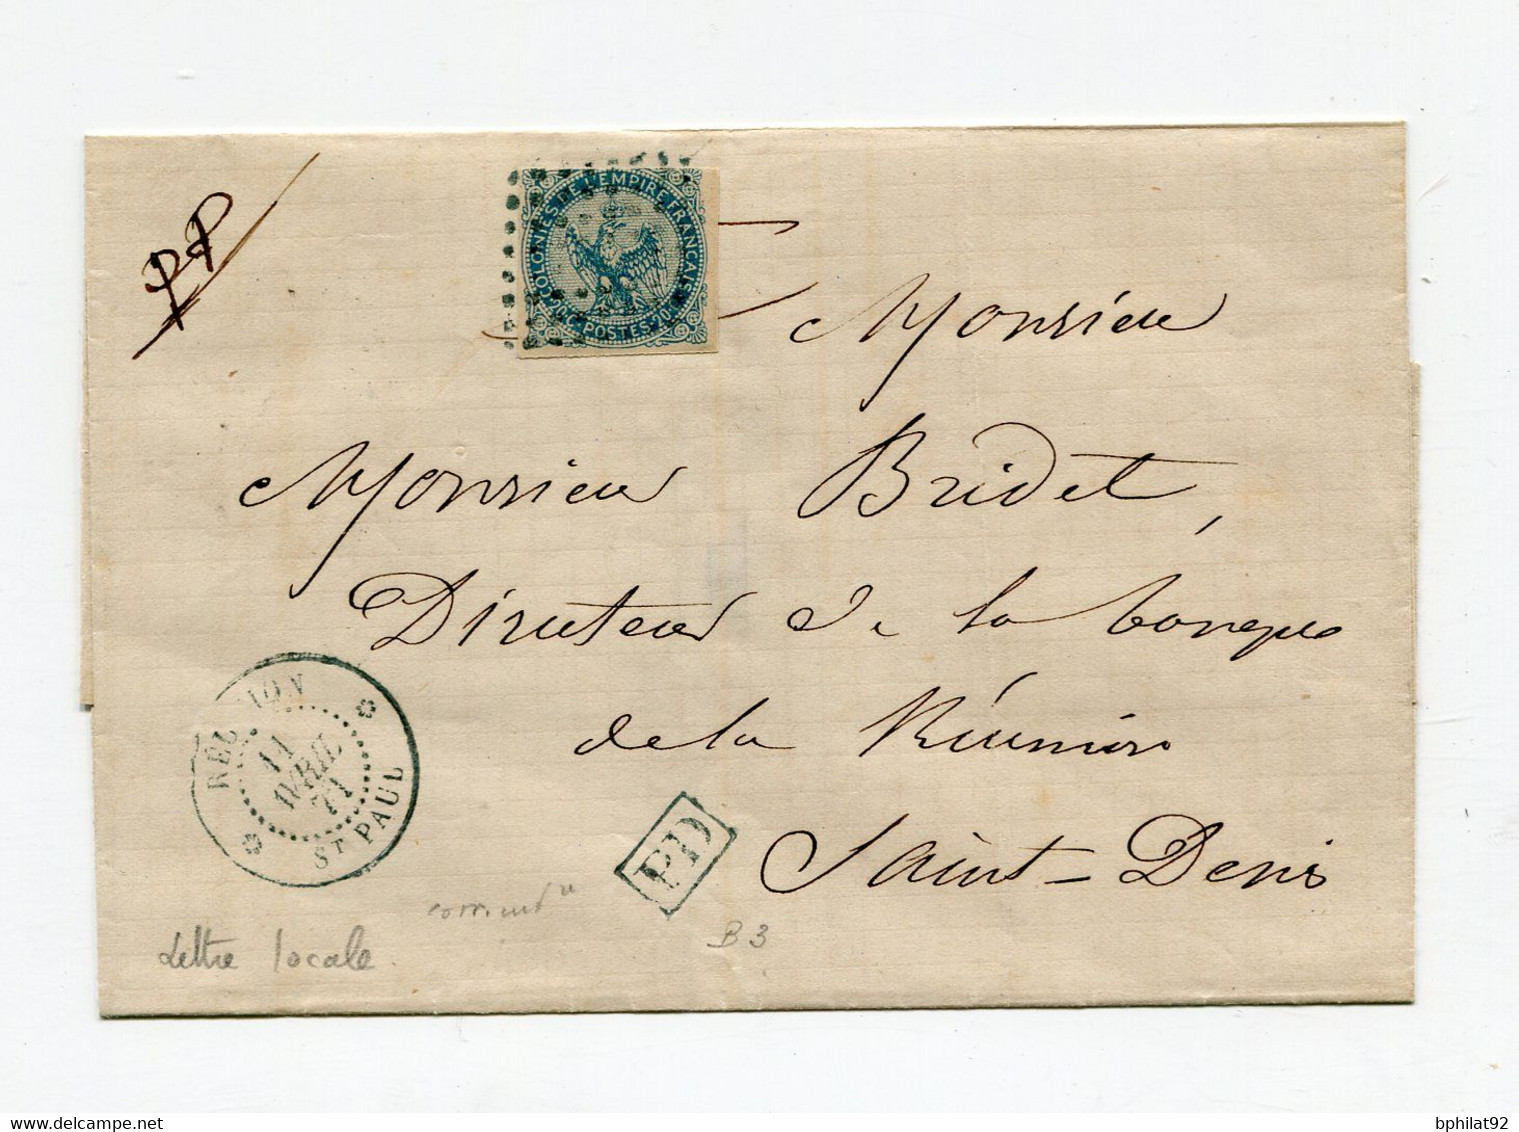 PP
COLONIES DE L'EMPIRE FRANÇAIS
20c. POSTES 20c.
Monsieur
Monsieur Bridet,
Directeur de la banque
de la Réunion
Saint-Denis
REUNION
11
AVRIL
71
ST PAUL
PD
B3
Lettre locale
bphilat92